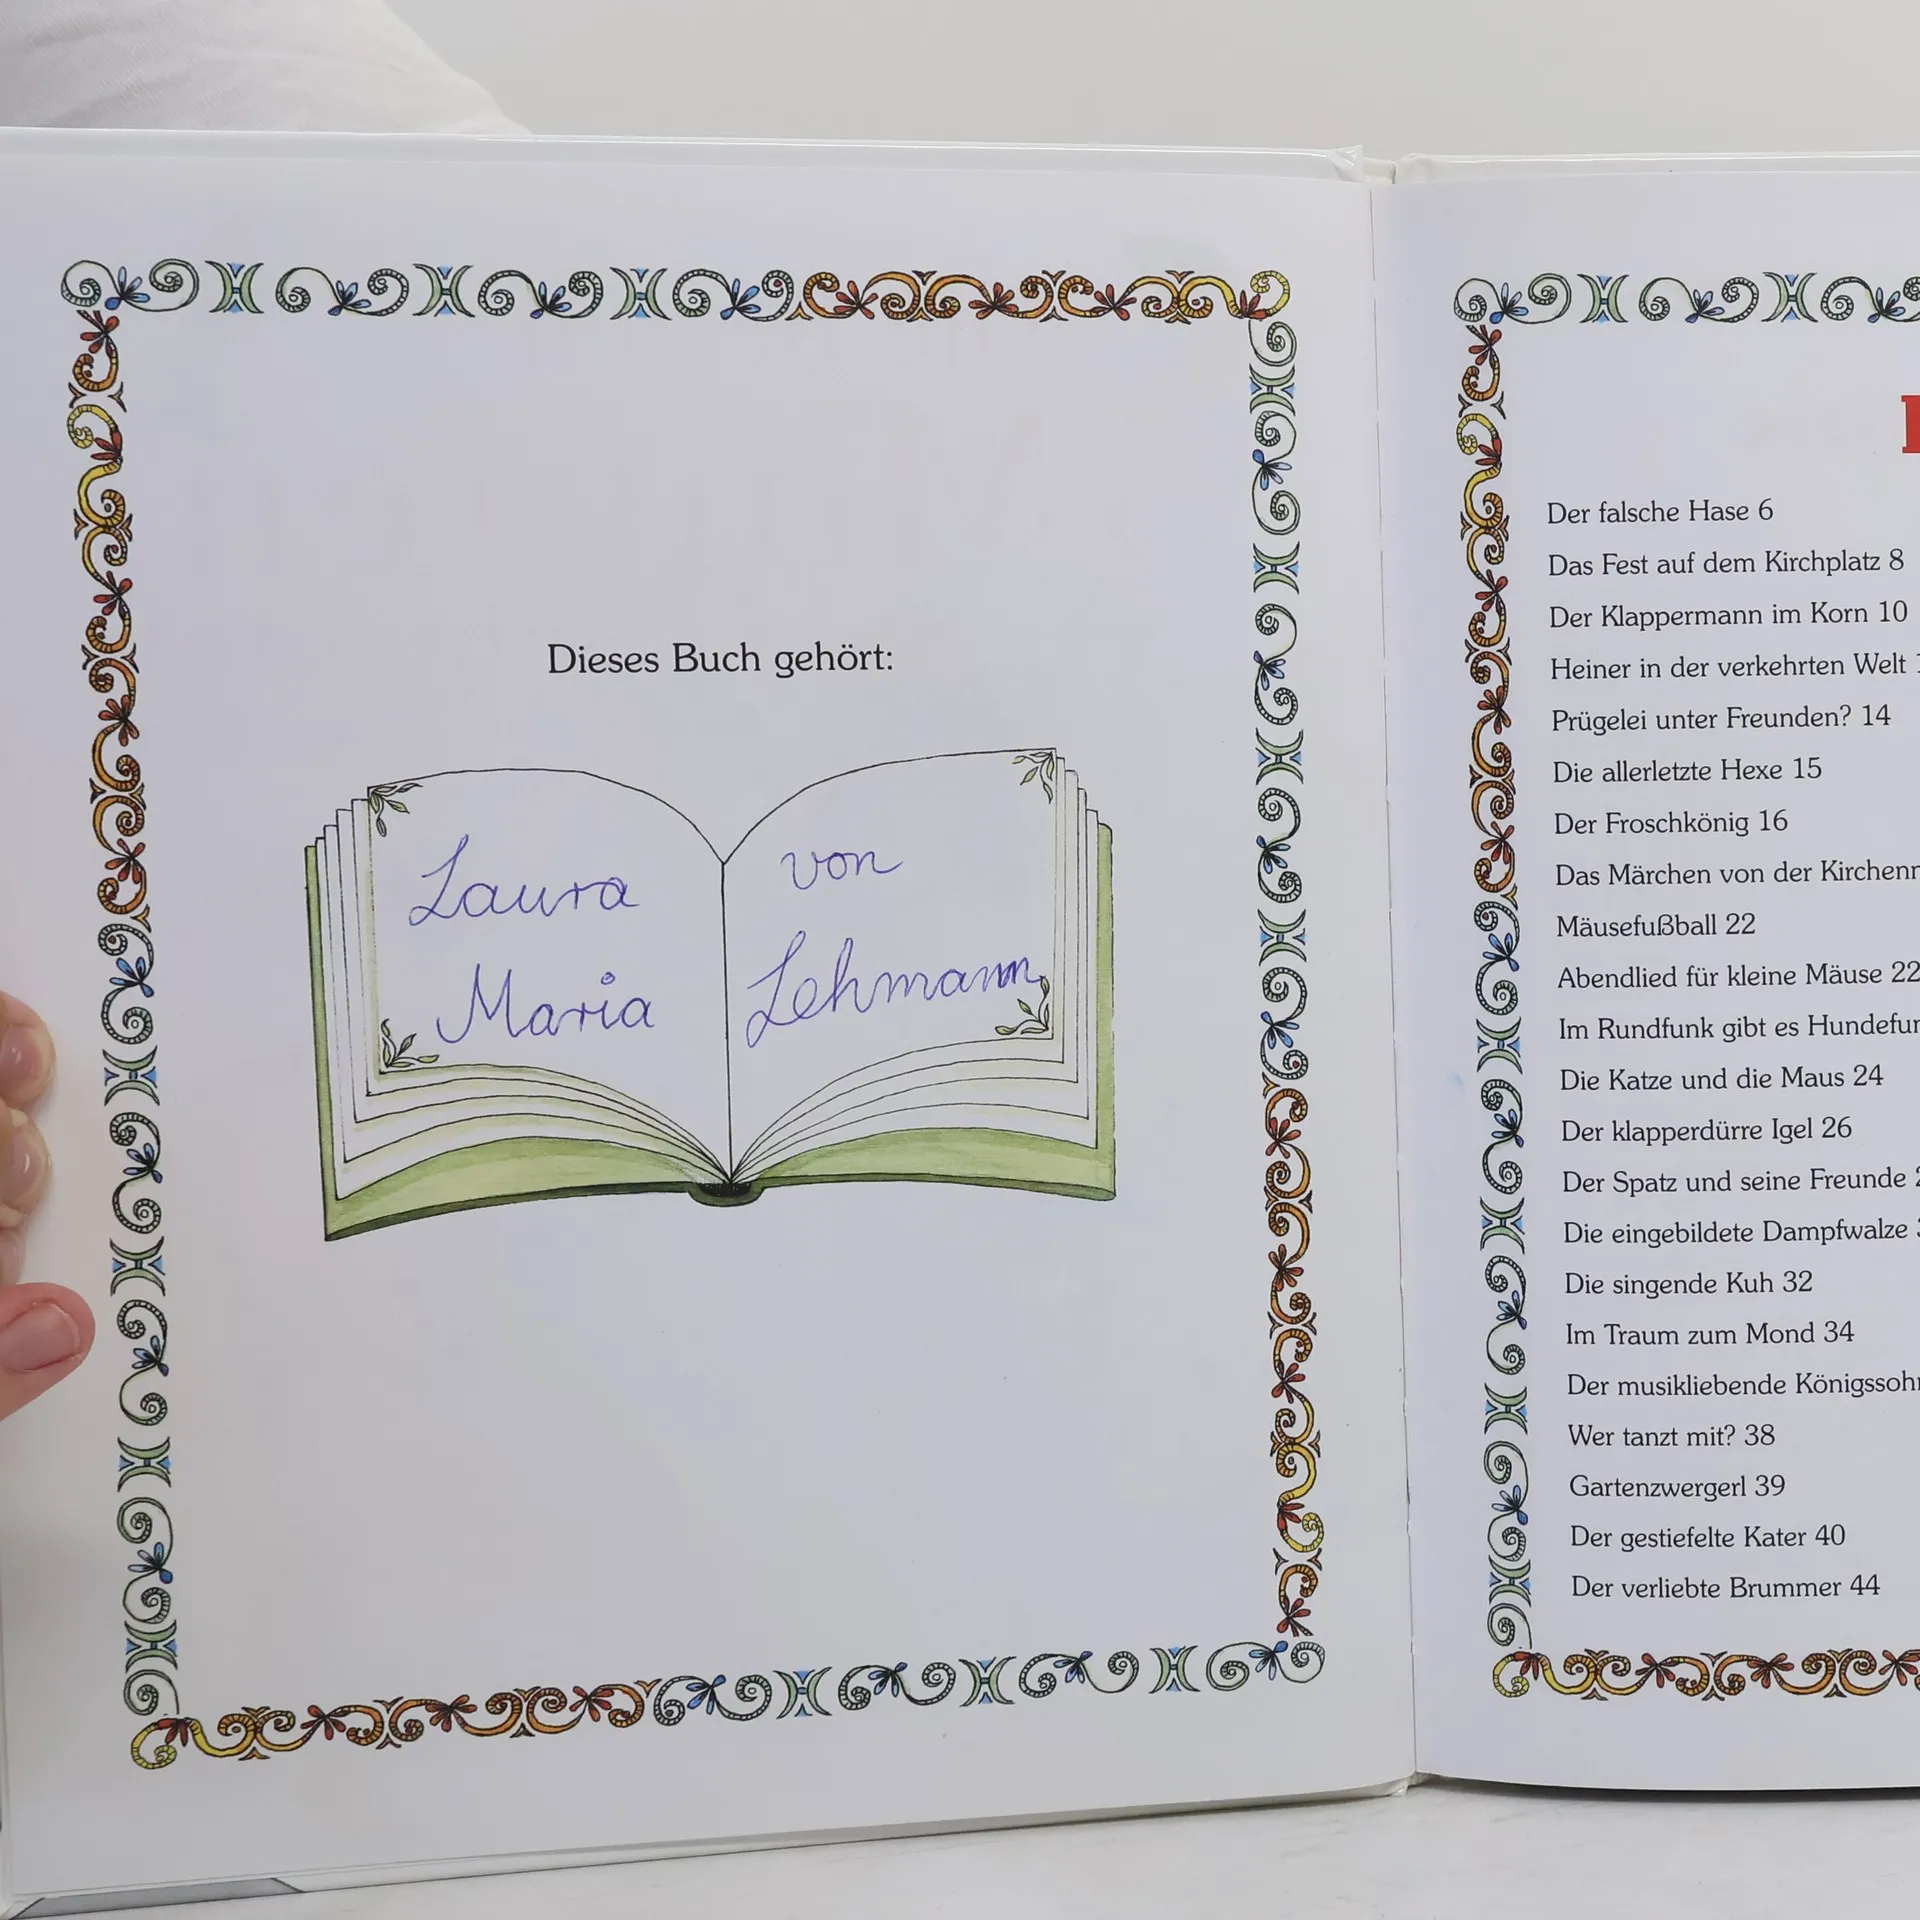 Dieses Buch gehört:
Laura
Maria
von
Lehmann
Der falsche Hase 6
Das Fest auf dem Kirchplatz 8
Der Klappermann im Korn 10
Heiner in der verkehrten Welt
Prügelei unter Freunden? 14
Die allerletzte Hexe 15
Der Froschkönig 16
Das Märchen von der
Mäusefußball 22
Abendlied für kleine Mäuse 22
Im Rundfunk gibt es
Die Katze und die Maus 24
Der klapperdürre Igel 26
Der Spatz und seine Freunde
Die eingebildete Dampfwalze
Die singende Kuh 32
Im Traum zum Mond 34
Der musikliebende
Wer tanzt mit? 38
Gartenzwergerl 39
Der gestiefelte Kater 40
Der verliebte Brummer 44